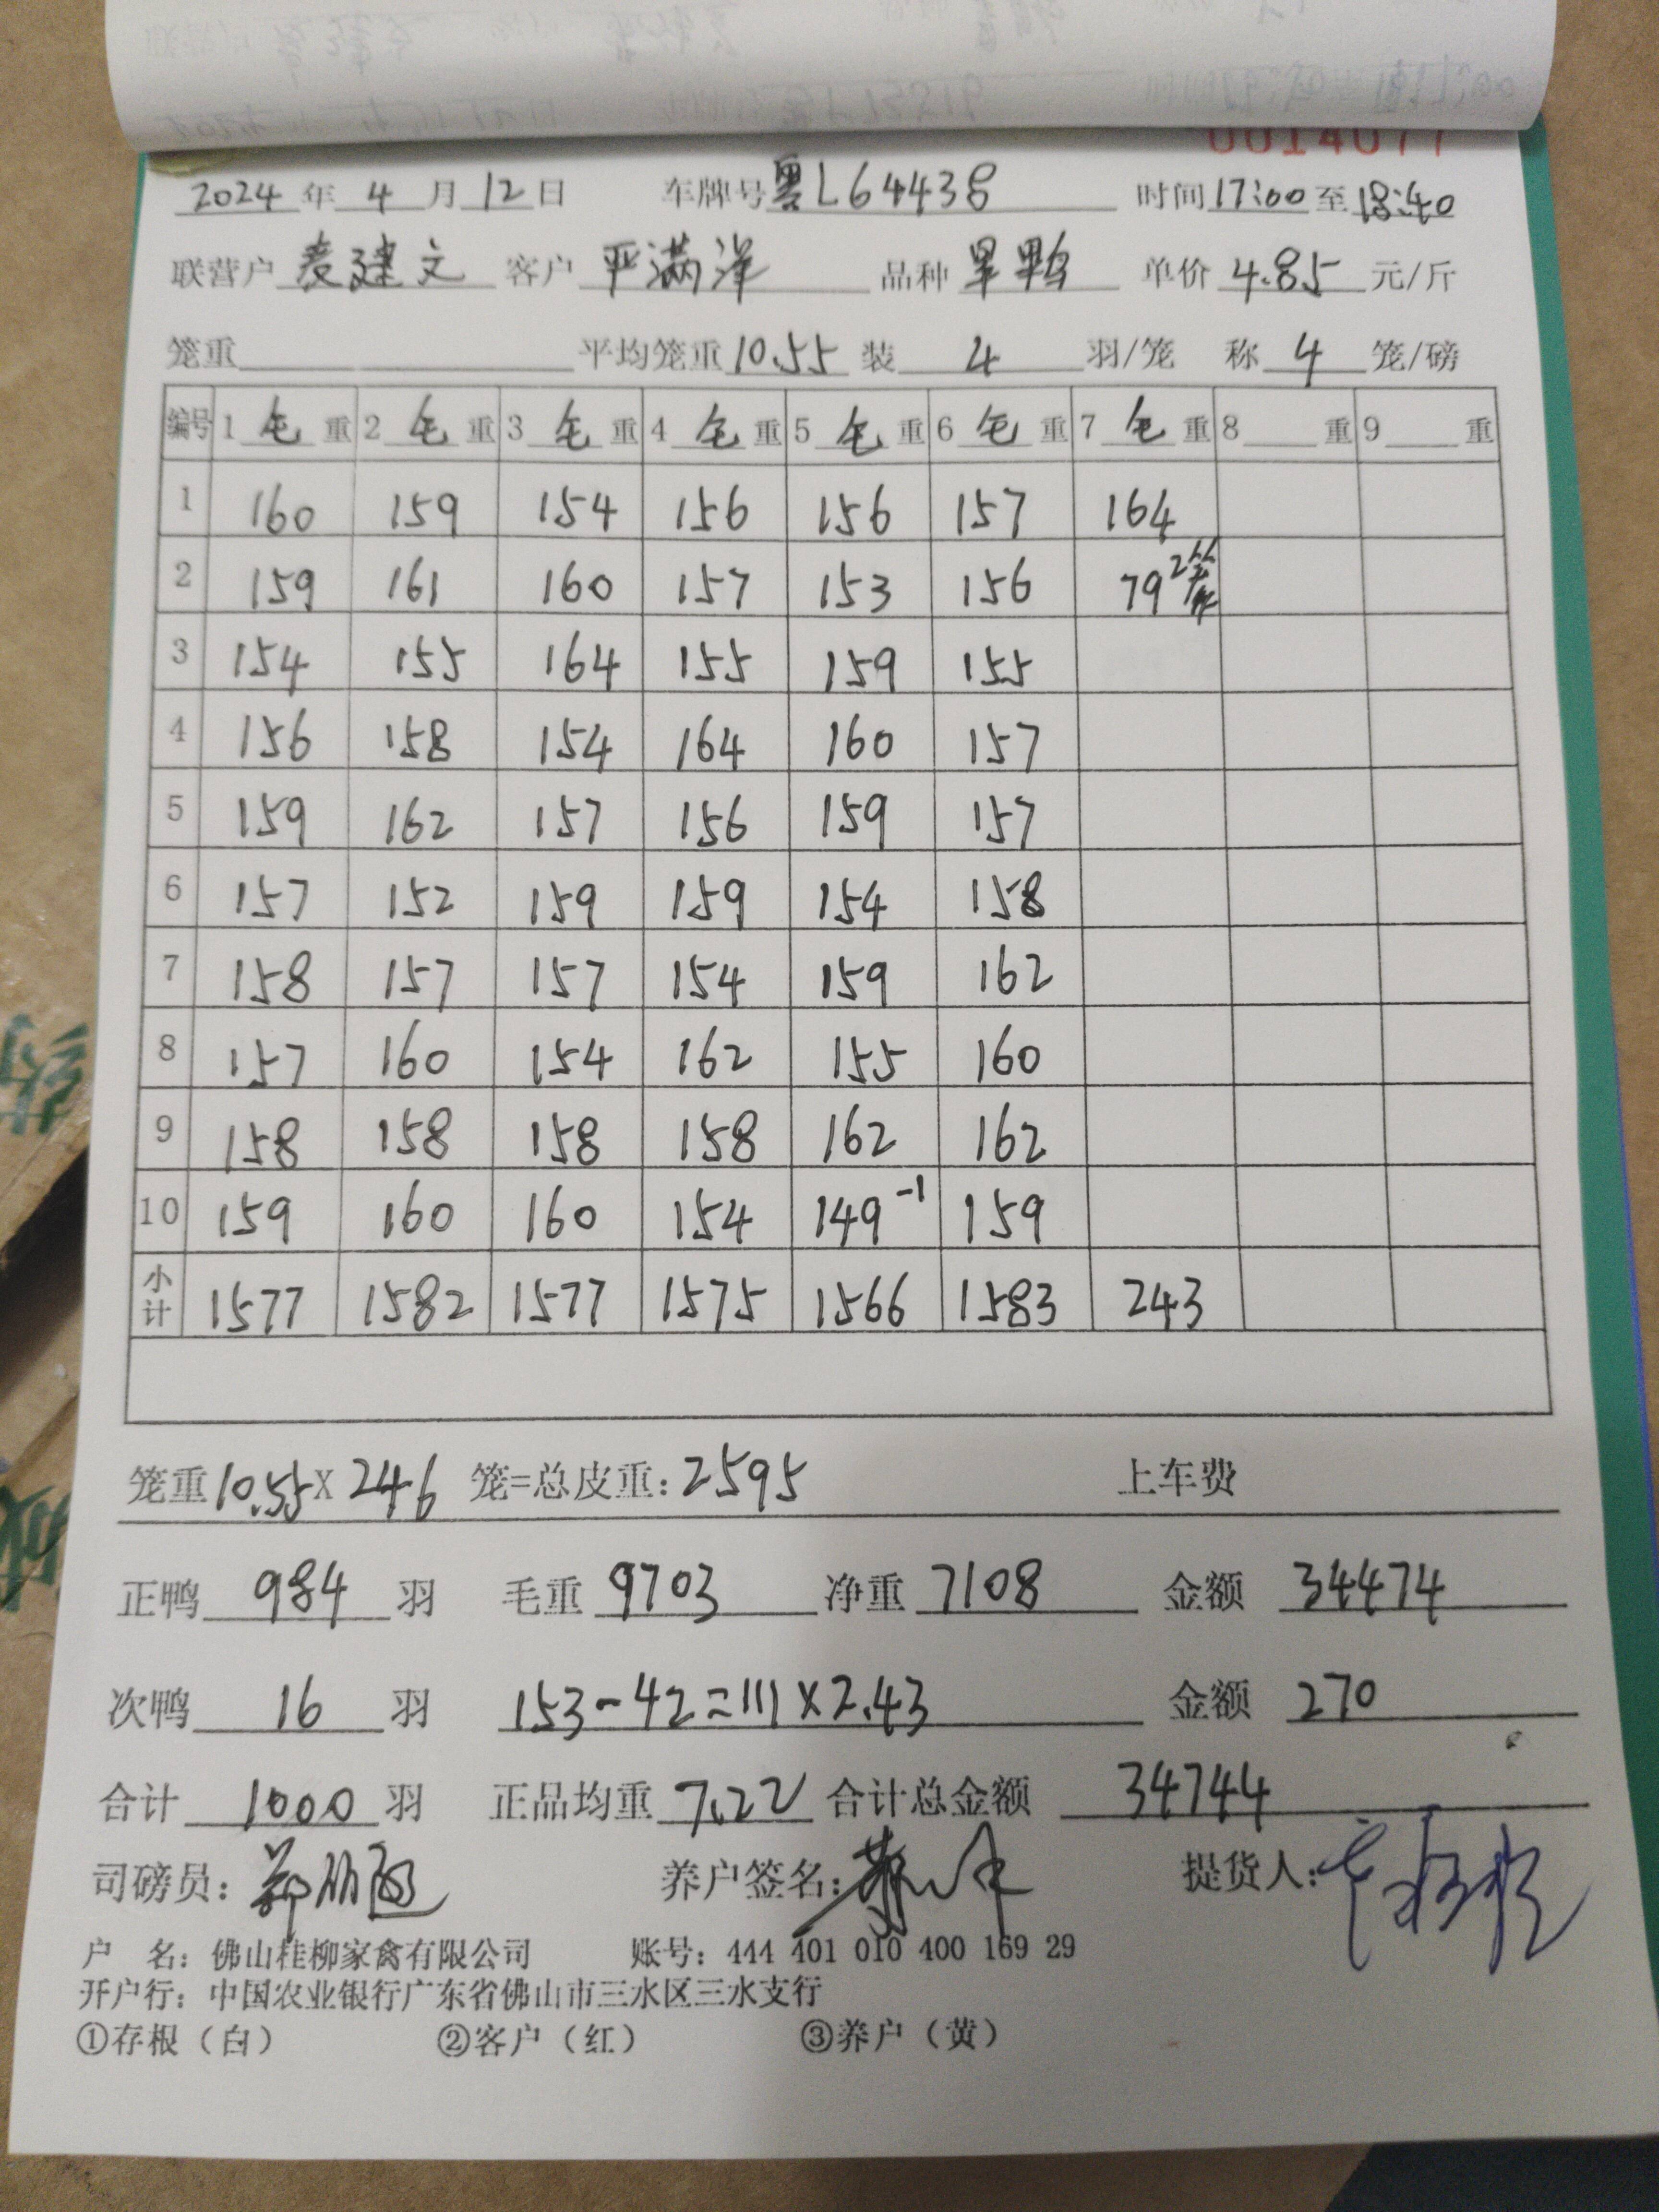 0014077
2024年4月12日 车牌号粤L64438 时间17:00至18:40
联营户麦建文 客户严满洋 品种旱鸭 单价4.85元/斤
笼重 平均笼重10.55装4羽/笼 称4笼/磅
编号 1毛重 2毛重 3毛重 4毛重 5毛重 6毛重 7毛重 8重 9重
1 160 159 154 156 156 157 164
2 159 161 160 157 153 156 79 2笼
3 154 155 164 155 159 155
4 156 158 154 164 160 157
5 159 162 157 156 159 157
6 157 152 159 159 154 158
7 158 157 157 154 159 162
8 157 160 154 162 155 160
9 158 158 158 158 162 162
10 159 160 160 154 149-1 159
小计 1577 1582 1577 1575 1566 1583 243
笼重10.55X246笼=总皮重:2595 上车费
正鸭984羽 毛重9703净重7108 金额34474
次鸭16羽 153-42=111×2.43 金额270
合计1000羽 正品均重7.22合计总金额34744
司磅员: 养户签名: 提货人:
户 名:佛山桂柳家禽有限公司 账号:444 401 010 400 169 29
开户行:中国农业银行广东省佛山市三水区三水支行
①存根(白) ②客户(红) ③养户(黄)